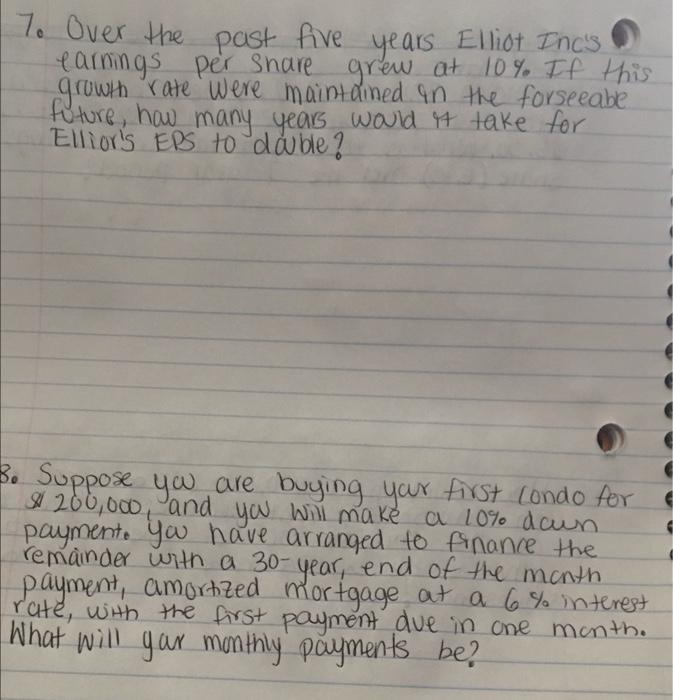 7. Over the past five years Elliot Inc's
earnings per share grew at 10% If this
growth rate were maintained in the forseeabe
future, how many years would it take for
Ellior's EPS to double?
8. Suppose you are buying your first condo for
$ 200,000, and you will make a 10% down
payment. You have arranged to finance the
remainder with a 30-year, end of the month
payment, amortized mortgage at a 6% interest
rate, with the first payment due in one month.
What will your monthly payments be?